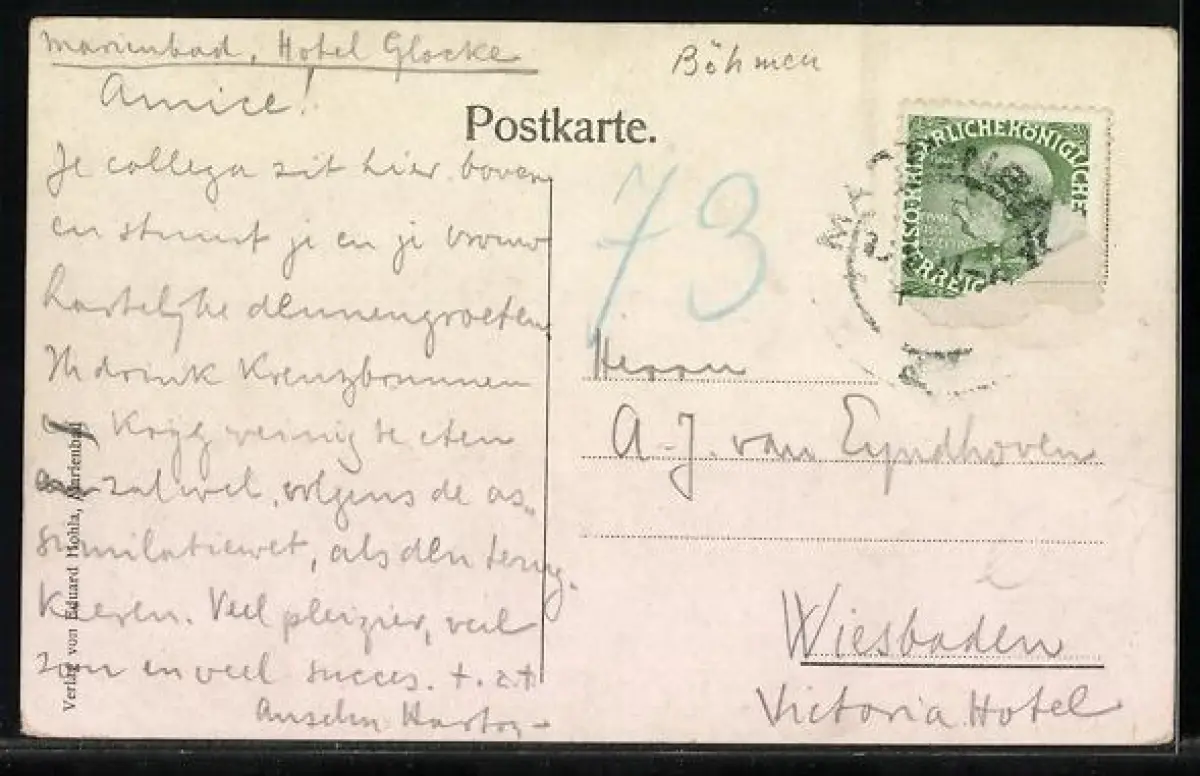 Marienbad, Hotel Glocke
Böhmen
Amice!
Postkarte.
Je collega zit hier boven
en stuurt je en je vrouw
hartelijke dennengroeten
Ik drink Kreuzbrunnen
Krijg weinig te eten
zal wel, volgens de as„
similatiewet, als den terug-
keeren. Veel pleizier, veel
zon en veel succes. t. à. t
Anselm
Verlag von Eduard Hohla, Marienbad
73
KAISERLICHE KÖNIGLICHE
ÖSTERREICH
Herrn
A-J. van Eyndhoven
Wiesbaden
Victoria Hotel